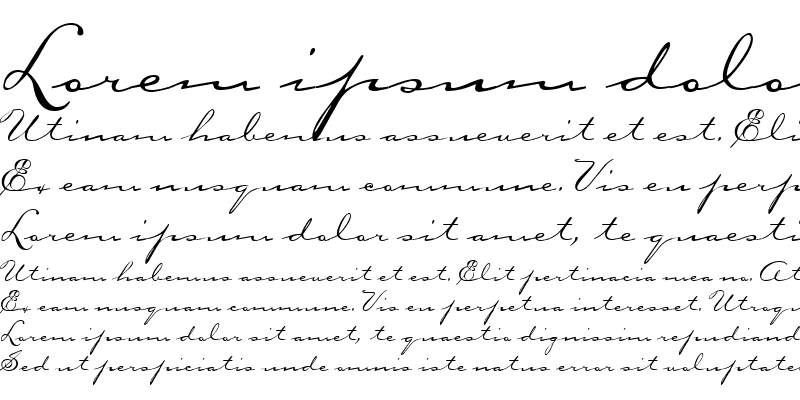 Lorem ipsum dolo
Utinam habemus assueverit et est. Eli
Ex eam nusquam commune. Vis eu perp
Lorem ipsum dolor sit amet, te quaesti
Utinam habemus assueverit et est. Elit pertinacia mea no. At
Ex eam nusquam commune. Vis eu perpetua interesset. Utroqu
Lorem ipsum dolor sit amet, te quaestio dignissim repudiand
Sed ut perspiciatis unde omnis iste natus error sit voluptate